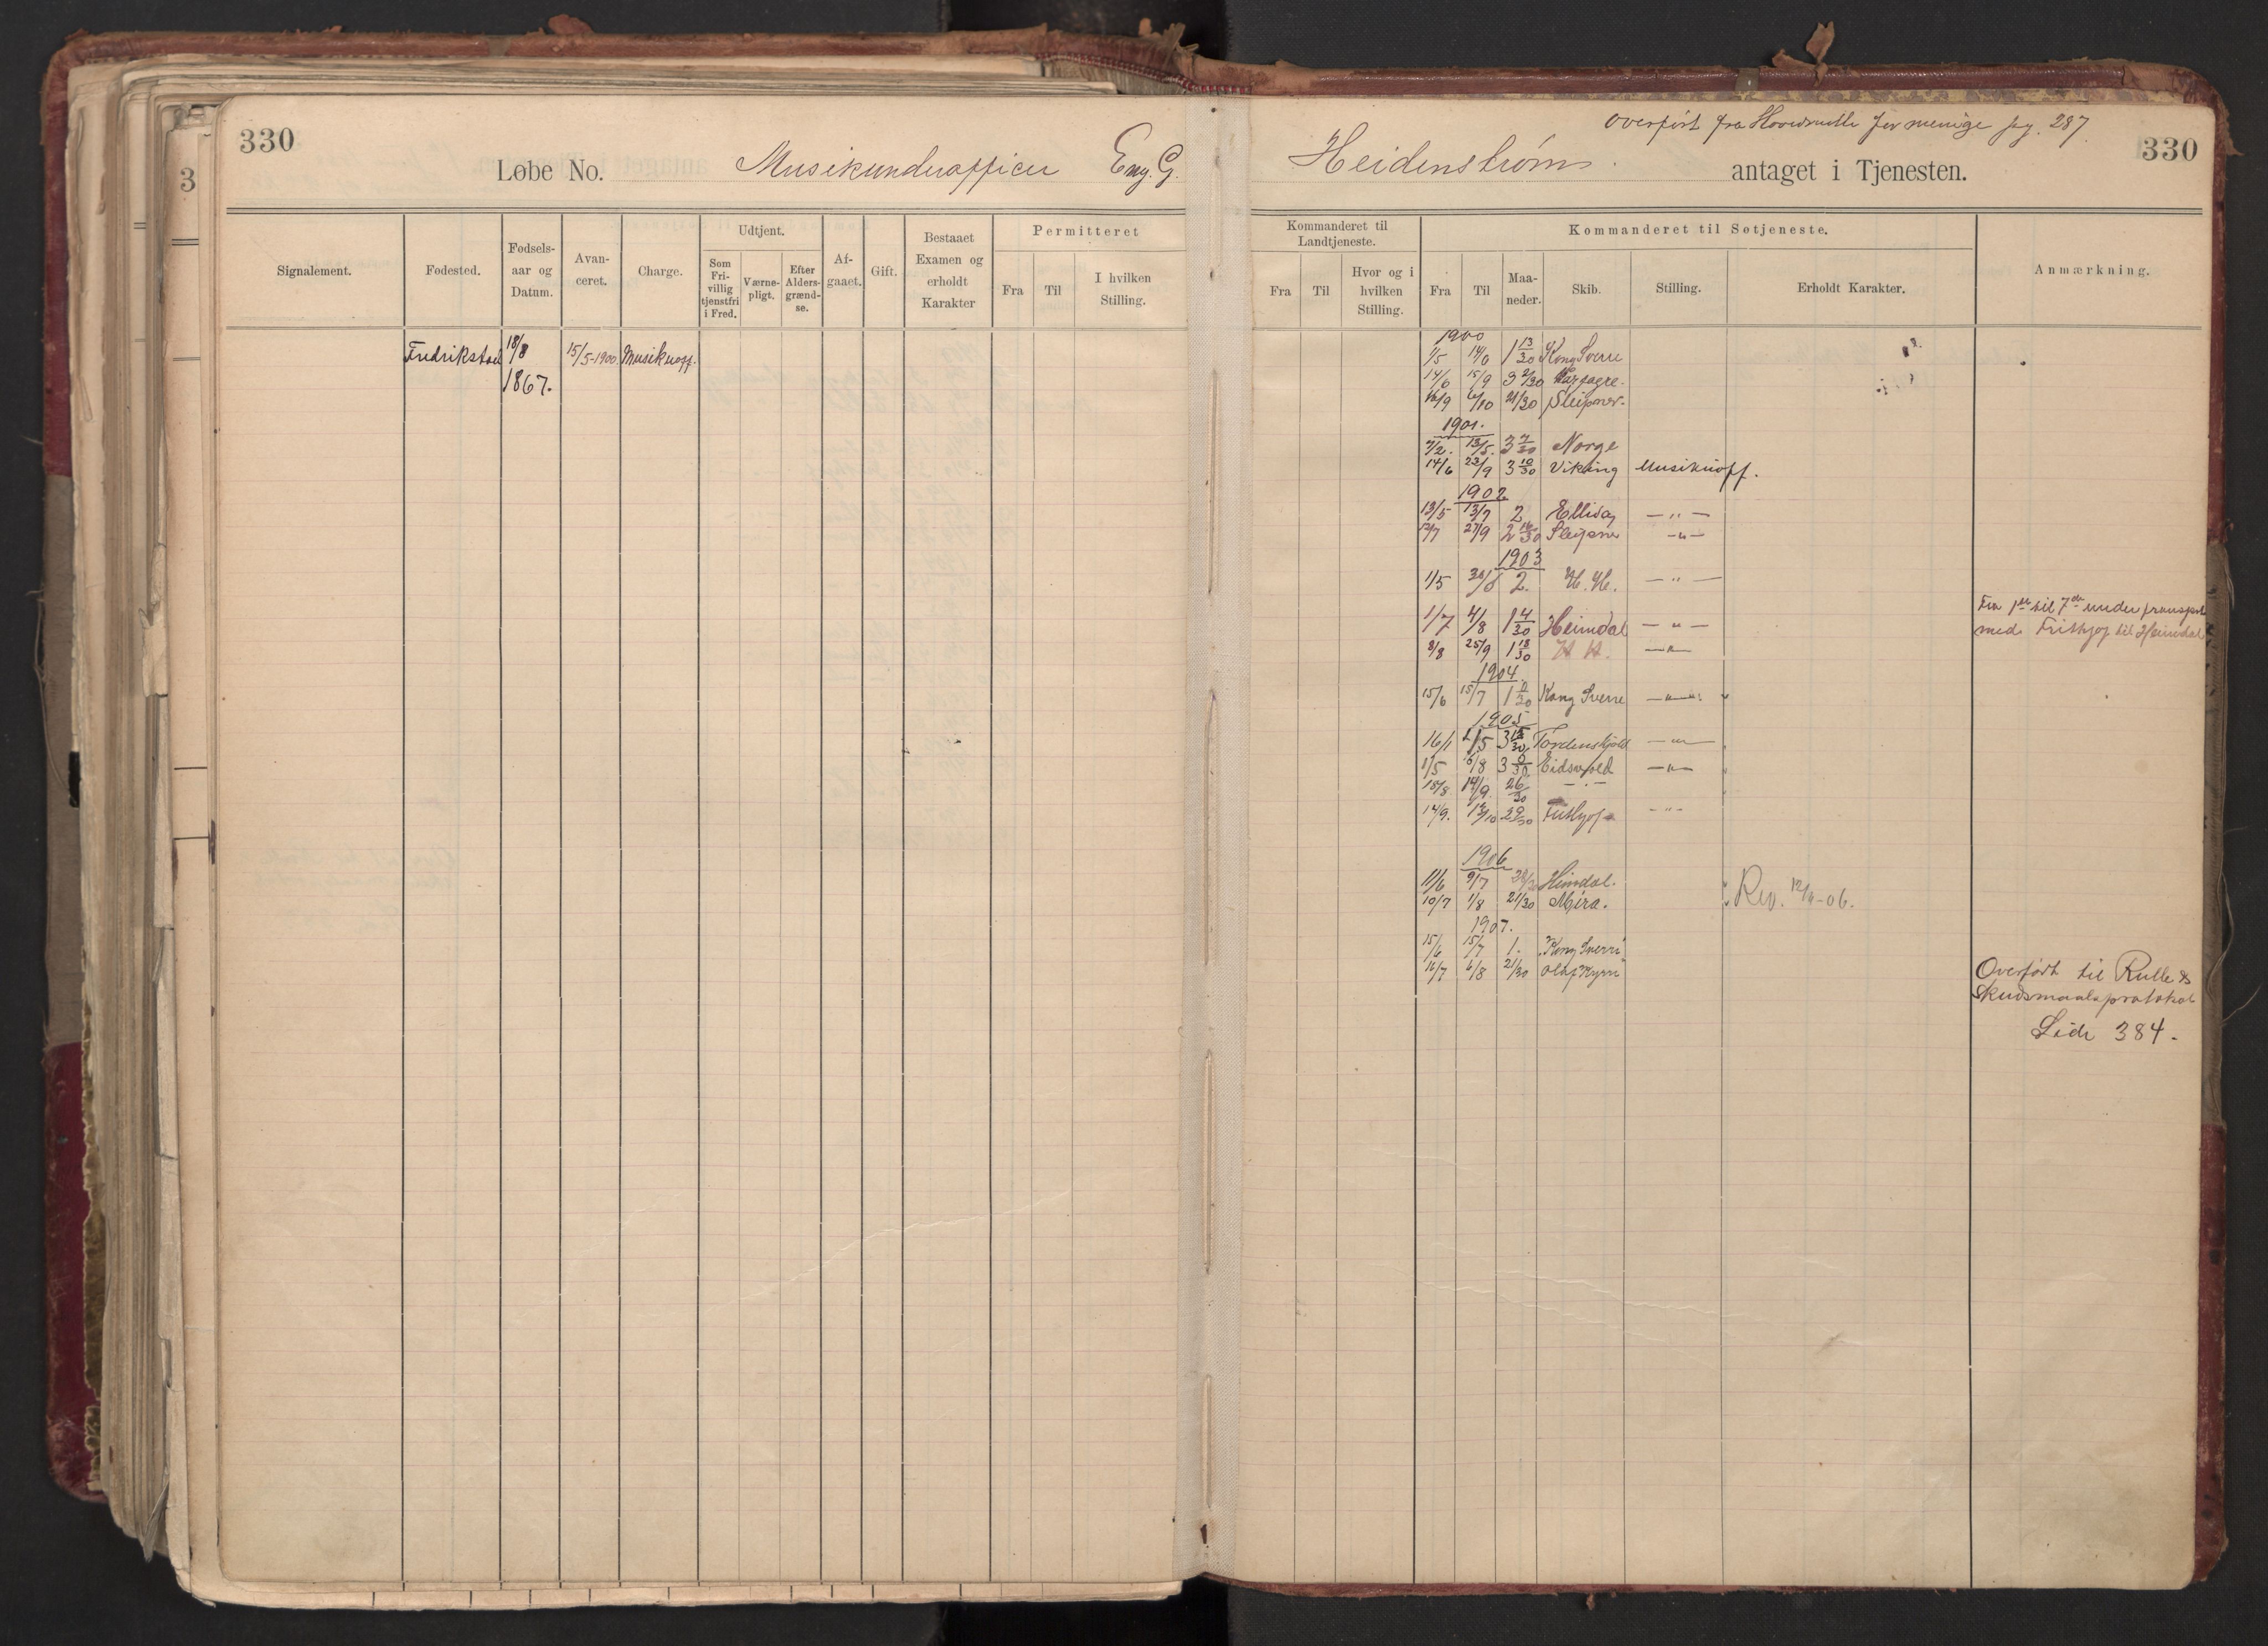 330
3
Løbe No. Musikunderofficer Eng. G.
Signalement.
Fødested.
Fødsels-
aar og
Datum.
Avan-
ceret.
Charge.
Udtjent.
Som
Fri-
villig
tjenstfri
i Fred.
Værne-
pligt.
Efter
Alders-
grænd-
se.
Af-
gaaet.
Gift.
Bestaaet
Examen og
erholdt
Karakter
Permitteret
Fra
Til
I hvilken
Stilling.
Fredrikstad 18/8 15/5-1900. Musikuoff.
1867.
overført fra Hovedrulle for menige pg. 287.
330
Heidenstrøm. antaget i Tjenesten.
Kommanderet til
Landtjeneste.
Fra
Til
Hvor og i
hvilken
Stilling.
Kommanderet til Søtjeneste.
Fra
Til
Maa-
neder.
Skib.
Stilling.
Erholdt Karakter.
Anmærkning.
1900
1/5 14/6 1 13/30 Kong Sverre
14/6 15/9 3 2/30 Harfagre.
16/9 6/10 21/30 Sleipner.
1901.
7/2. 13/5. 3 7/30 Norge
14/6 23/9 3 10/30 Viking Musikuoff.
1902
13/5 13/7 2 Ellida — " —
12/7 27/9 2 16/30 Sleipner — " —
1903
1/5 30/6 2. H. H. — " —
1/7 4/8 1 4/30 Heimdal — " —
Fra 1ste til 7de under transport
med Frithjof til Heimdal
8/8 25/9 1 18/30 H H. — " —
1904.
15/6 15/7 1 0/30 Kong Sverre — " —
1905
16/1 1/5 3 15/30 Tordenskjold — " —
1/5 6/8 3 0/30 Eidsvold — " —
18/8 14/9. 26/30 — " —
14/9. 12/10 29/30 Frithjof — " —
1906
11/6 9/7 29/30 Heimdal.
10/7 1/8 21/30 Mira. Rev. 12/11-06.
1907.
15/6 15/7 1. "Kong Sverre"
16/7 6/8 21/30 Olaf Kyrre
Overført til Rulle &
Skudsmaalsprotokol
Side 384.